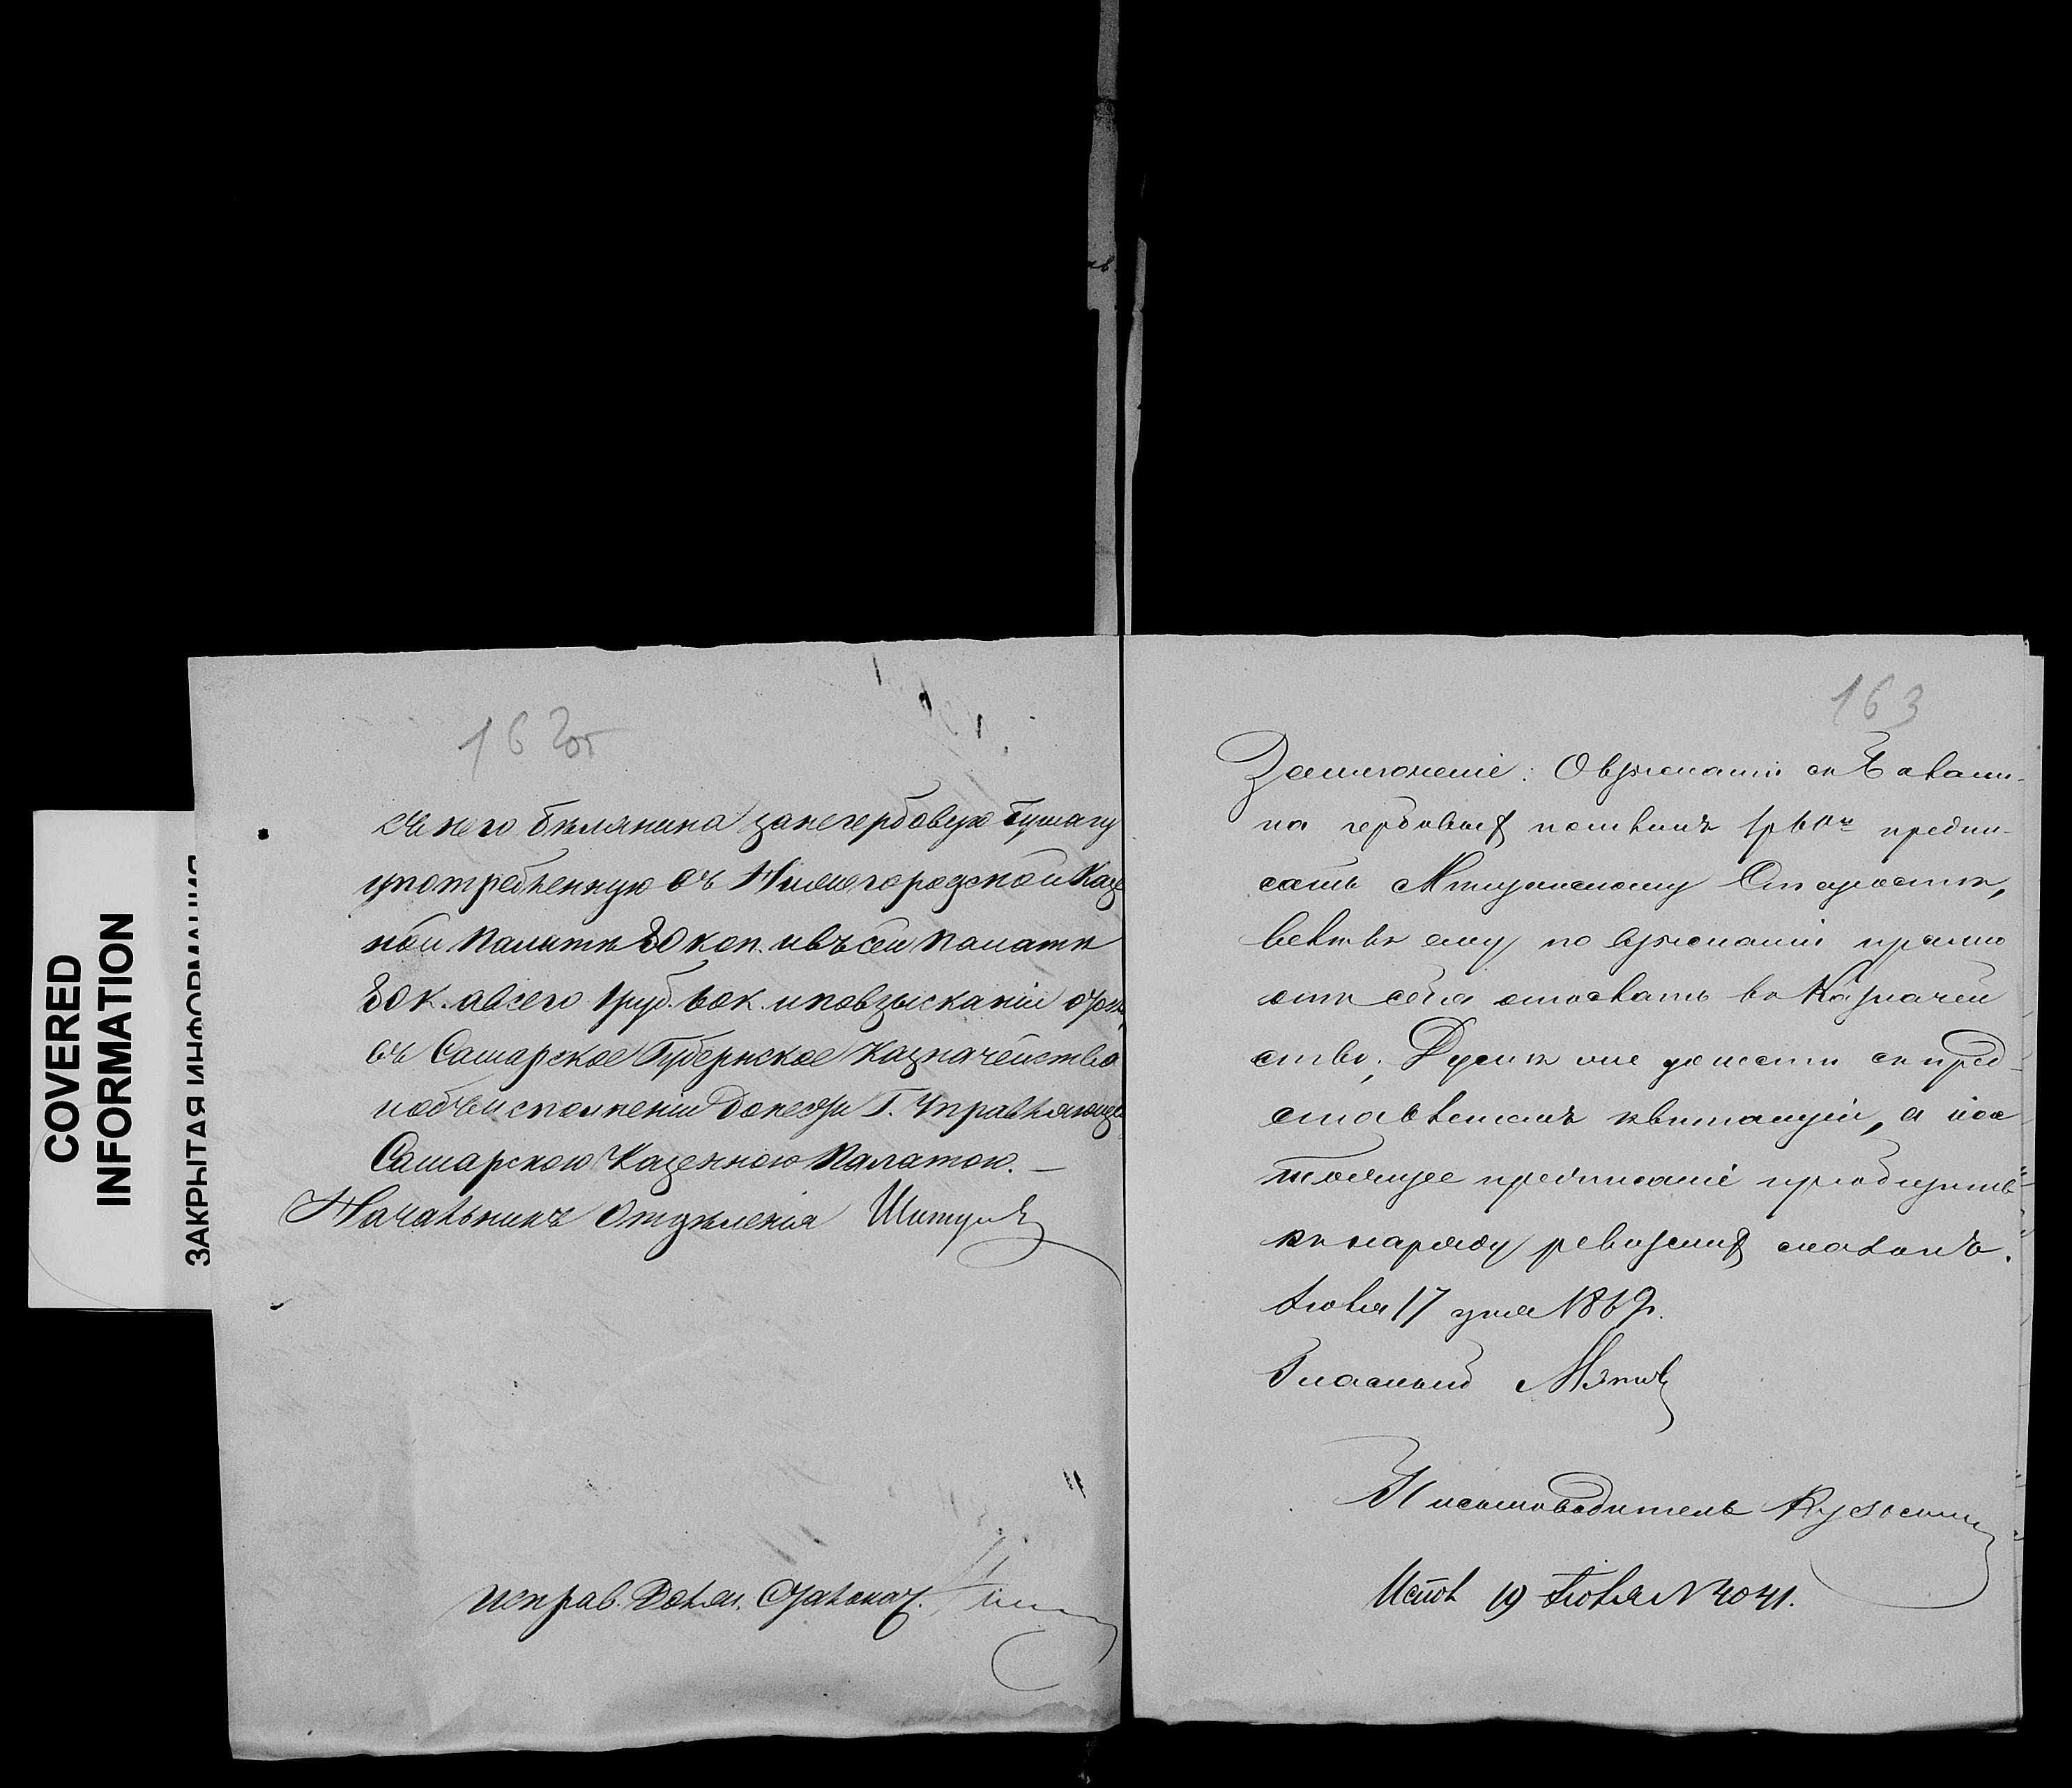 COVERED
INFORMATION
ЗАКРЫТАЯ ИНФОРМАЦИЯ
162об
съ него Бѣлянина за негербовую бумагу
употребленную въ Нижегородской Казен
ной Палатѣ 80 коп. и въ сей Палатѣ
80 к. а всего 1 руб. 60 к. и по взысканіи
въ Самарское Губернское Казначейство
и объ исполненіи донести Г. Управляюще
Самарскою Казенною Палатою. —
Начальникъ Отдѣленія
Исправ. Должн. Столонач.
163
Заключеніе: О взысканіи съ
на гербовыхъ пошлинъ 1 р 60 к предпи-
сать Старостѣ,
велѣть ему по взысканіи прямо
отъ себя отослать въ Казначей
ство, Думѣ же донести съ пред-
ставленіемъ квитанціи, а нас
тоящее предписаніе пріобщить
къ наряду ревизскихъ сказокъ.
Іюля 17 дня 1867.
Гласный
Письмоводитель
Испол 19 Іюля N 4041.